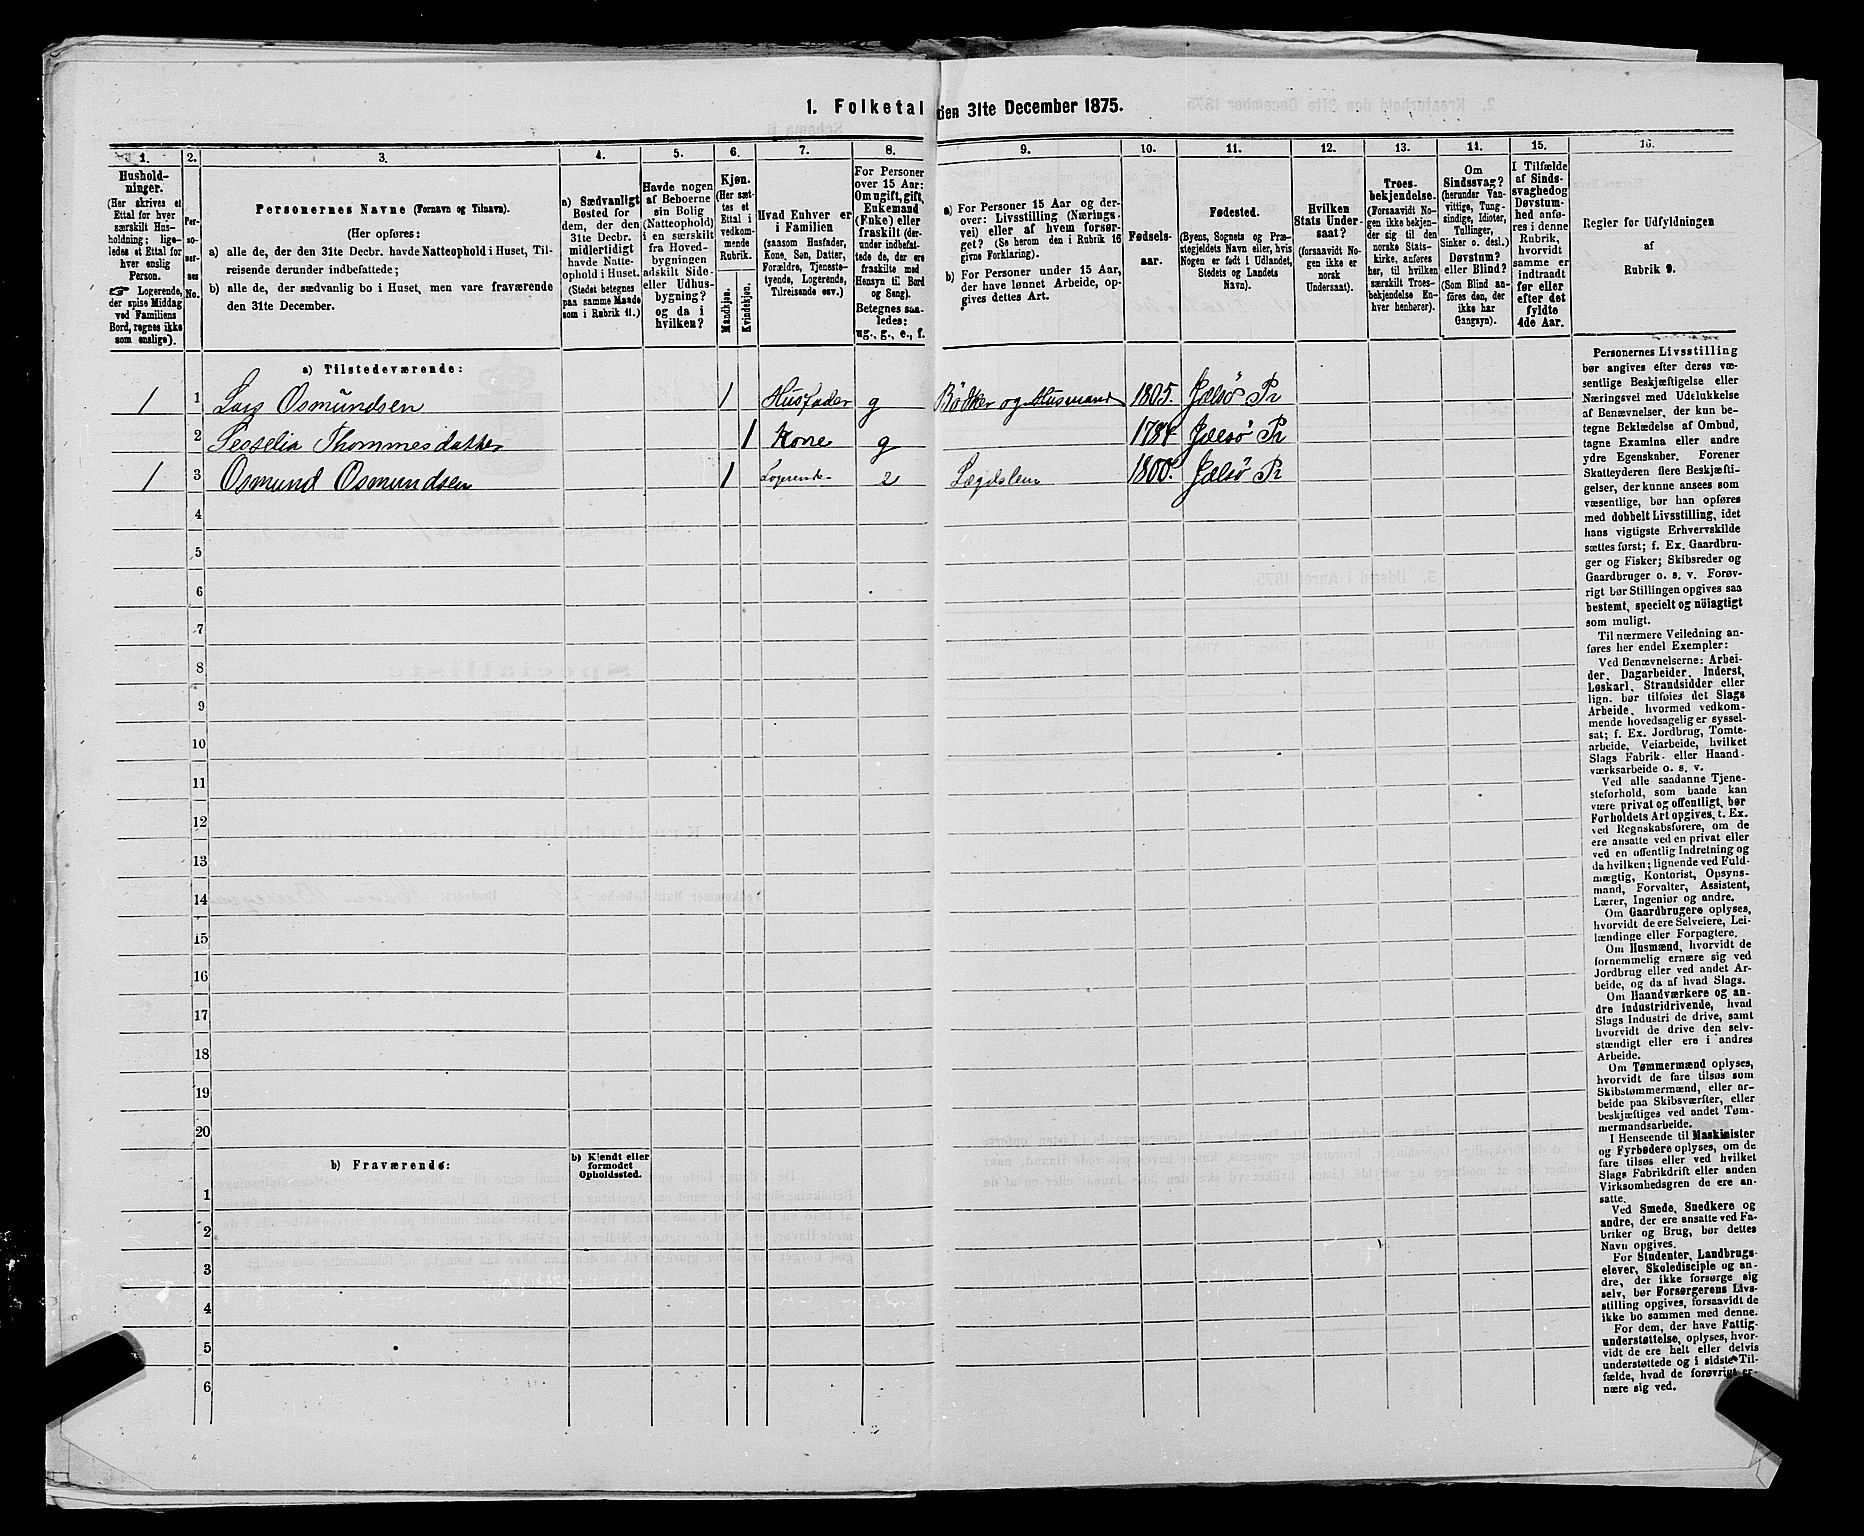 1. Folketal den 31te December 1875.
1. 2. 3. 4. 5. 6. 7. 8. 9. 10. 11. 12. 13. 14. 15. 16.
Hushold-
ninger.
(Her skrives et
Ettal for hver
særskilt Hus-
holdning; lige-
ledes et Ettal for
hver enslig
Person.
☞ Logerende,
der spise Middag
ved Familiens
Bord, regnes ikke
som enslige).
Per-
so-
ner-
nes
No.
Personernes Navne (Fornavn og Tilnavn).
(Her opføres:
a) alle de, der den 31te Decbr. havde Natteophold i Huset, Til-
reisende derunder indbefattede;
b) alle de, der sædvanlig bo i Huset, men vare fraværende
den 31te December.
a) Sædvanligt
Bosted for
dem, der den
31te Decbr.
midlertidigt
havde Natte-
ophold i Huset.
(Stedet betegnes
paa samme Maade
som i Rubrik 11.)
Havde nogen
af Beboerne
sin Bolig
(Natteophold)
i en særskilt
fra Hoved-
bygningen
adskilt Side-
eller Udhus-
bygning?
og da i
hvilken?
Kjøn.
(Her sæt-
tes et
Ettal i
vedkom-
mende
Rubrik.
Mandkjøn.
Kvindekjøn.
Hvad Enhver er
i Familien
(saasom Husfader,
Kone, Søn, Datter,
Forældre, Tjeneste-
tyende, Logerende,
Tilreisende osv.)
For Personer
over 15 Aar:
Om ugift, gift,
Enkemand
(Enke) eller
fraskilt (der-
under indbefat-
tede de, der ere
fraskilte med
Hensyn til Bord
og Seng).
Betegnes saa-
ledes:
ug., g., e., f.
a) For Personer 15 Aar og der-
over: Livsstilling (Nærings-
vei) eller af hvem forsør-
get? (Se herom den i Rubrik 16
givne Forklaring).
b) For Personer under 15 Aar,
der have lønnet Arbeide, op-
gives dettes Art.
Fødsels-
aar.
Fødested.
(Byens, Sognets og Præ-
stegjeldets Navn eller, hvis
Nogen er født i Udlandet,
Stedets og Landets
Navn).
Hvilken
Stats Under-
saat?
(forsaavidt No-
gen ikke er
norsk
Undersaat).
Troes-
bekjendelse.
(Forsaavidt No-
gen ikke bekjen-
der sig til den
norske Stats-
kirke, anføres
her, til hvilken
særskilt Troes-
bekjendelse En-
hver henhører).
Om
Sindssvag?
(herunder Van-
vittige, Tung-
sindige, Idioter,
Tullinger,
Sinker o. desl.)
Døvstum?
eller Blind?
(Som Blind an-
føres den, der
ikke har
Gangsyn).
I Tilfælde
af Sinds-
svaghed og
Døvstum-
hed anfø-
res i denne
Rubrik,
hvorvidt
samme er
indtraadt
før eller
efter det
fyldte
4de Aar.
Regler for Udfyldningen
af
Rubrik 9.
a) Tilstedeværende:
1 1 Lars Osmundsen 1 Husfader g Bödker og Husmand 1805. Jælsö Pr
2 Thommesdatter 1 Kone g Jelsö Pr
1 3 Osmund Osmundsen 1 Logerende 1800. Jælsö Pr
4
5
6
7
8
9
10
11
12
13
14
15
16
17
18
19
20
b) Fraværende:
b) Kjendt eller
formodet
Opholdssted.
1
2
3
4
5
6
Personernes Livsstilling
bør angives efter deres væ-
sentlige Beskjæftigelse eller
Næringsvei med Udelukkelse
af Benævnelser, der kun be-
tegne Beklædelse af Ombud,
tagne Examina eller andre
ydre Egenskaber. Forener
Skatteyderen flere Beskjæfti-
gelser, der kunne ansees som
væsentlige, bør han opføres
med dobbelt Livsstilling, idet
hans vigtigste Erhvervskilde
sættes først; f. Ex. Gaardbru-
ger og Fisker; Skibsreder og
Gaardbruger o. s. v. Forøv-
rigt bør Stillingen opgives saa
bestemt, specielt og nöiagtigt
som muligt.
Til nærmere Veiledning an-
føres her endel Exempler:
Ved Benævnelserne: Arbei-
der, Dagarbeider, Inderst,
Løskarl, Strandsidder eller
lign. bør tilføies det Slags
Arbeide, hvormed vedkom-
mende hovedsagelig er syssel-
sat; f. Ex. Jordbrug, Tomte-
arbeide, Veiarbeide, hvilket
Slags Fabrik- eller Haand-
værksarbeide o. s. v.
Ved alle saadanne Tjene-
steforhold, som baade kan
være privat og offentligt, bør
Forholdets Art opgives, t. Ex.
ved Regnskabsførere, om de
ere ansatte ved en privat eller
ved en offentlig Indretning og
da hvilken; lignende ved Fuld-
mægtig, Kontorist, Opsyns-
mand, Forvalter, Assistent,
Lærer, Ingeniør og andre.
Om Gaardbrugere oplyses,
hvorvidt de ere Selveiere, Lei-
lændinge eller Forpagtere.
Om Husmænd, hvorvidt de
fornemmelig ernære sig ved
Jordbrug eller ved andet Ar-
beide, og da af hvad Slags.
Om Haandværkere og an-
dre Industridrivende, hvad
Slags Industri de drive, samt
hvorvidt de drive den selv-
stændigt eller ere i andres
Arbeide.
Om Tømmermænd oplyses,
hvorvidt de fare tilsøs som
Skibstømmermænd, eller ar-
beide paa Skibsværfter, eller
beskjæftiges ved andet Tøm-
mermandsarbeide.
I Henseende til Maskinister
og Fyrbødere oplyses, om de
fare tilsøs eller ved hvilket
Slags Fabrikdrift eller anden
Virksomhedsgren de ere an-
satte.
Ved Smede, Snedkere og
andre, der ere ansatte ved Fa-
briker og Brug, bør dettes
Navn opgives.
For Studenter, Landbrugs-
elever, Skoledisciple og an-
dre, der ikke forsørge sig
selv, bør Forsørgerens Livs-
stilling opgives, forsaavidt de
ikke bo sammen med denne.
For dem, der have Fattig-
understøttelse, oplyses, hvor-
vidt de ere helt eller delvis
understøttede og i sidste Til-
fælde, hvad de forøvrigt er-
nære sig ved.